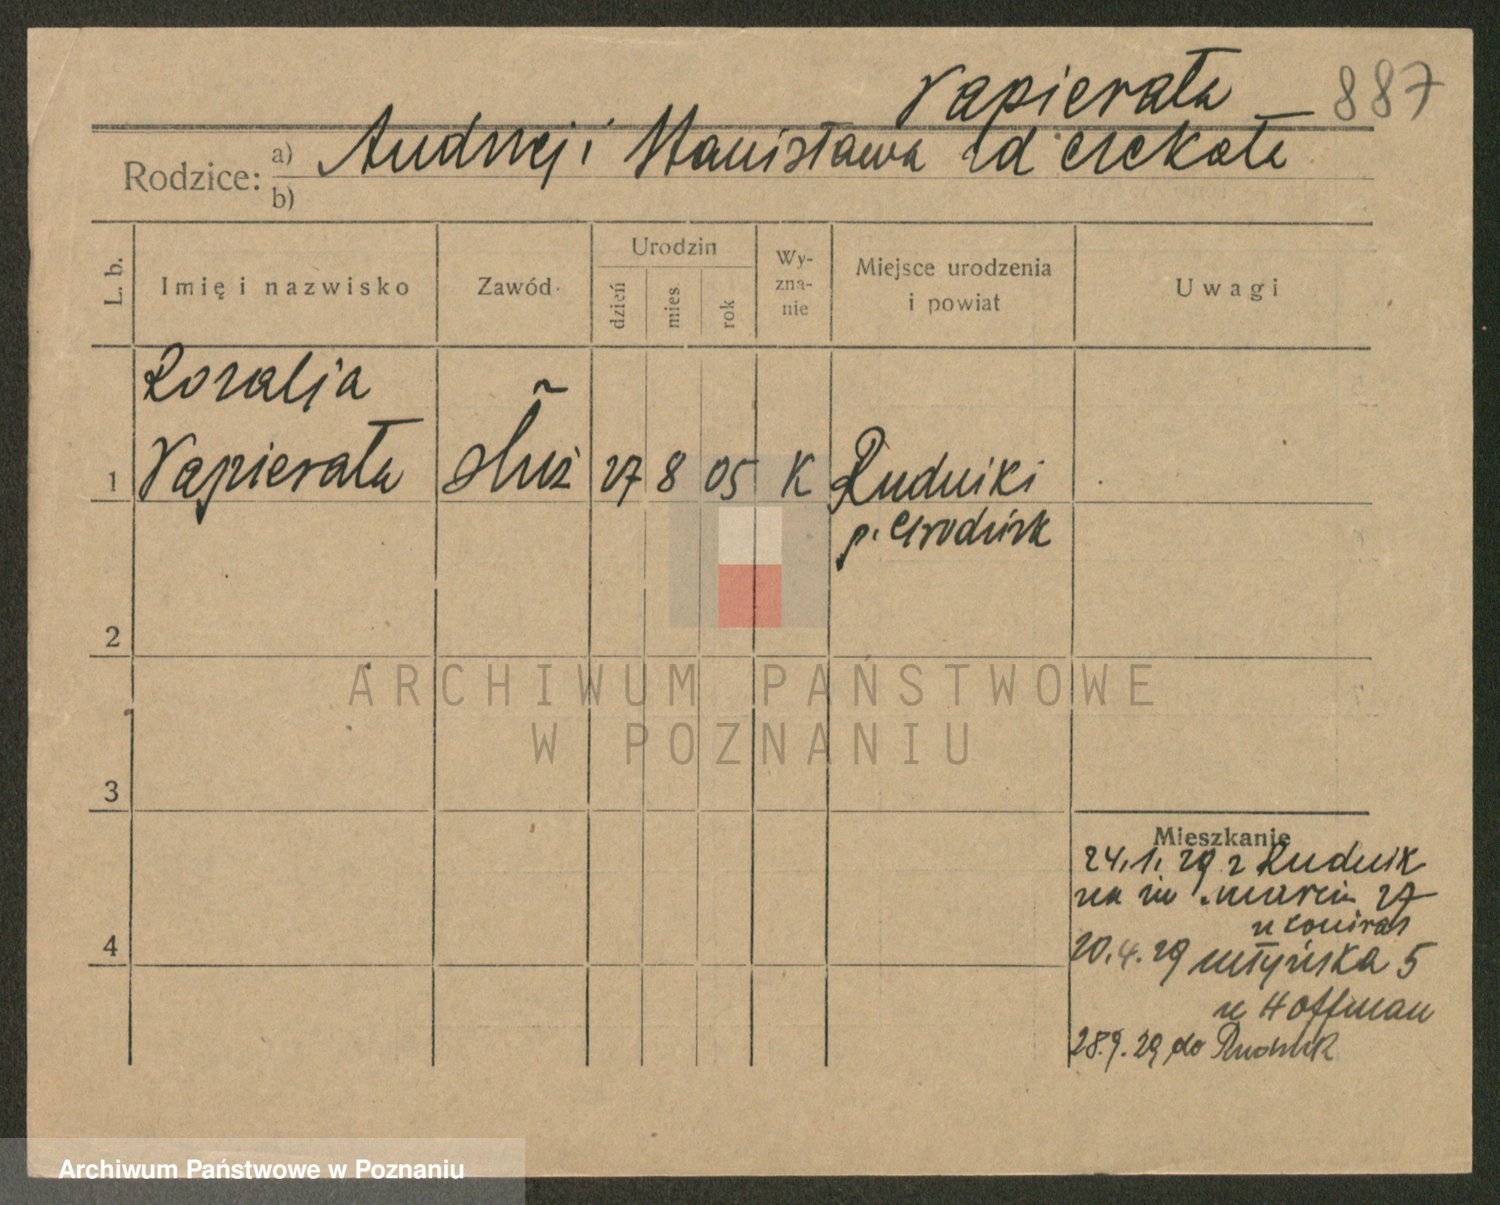 Napierała
887
Andrzej i Stanisława zd Czekała
Rodzice: a)
b)
L. b.
Imię i nazwisko
Zawód
Urodzin
dzień
mies
rok
Wy-
zna-
nie
Miejsce urodzenia
i powiat
Uwagi
Rozalja
1 Napierała służ 27 8 05 K Rudniki
p. Grodzisk
2
ARCHIWUM PAŃSTWOWE
W POZNANIU
3
Mieszkanie
24.1.29 z Rudnik
na św. Marcin 27
u
4
20.4.29 Młyńska 5
u Hoffman
28.9.29 do Rudnik
Archiwum Państwowe w Poznaniu